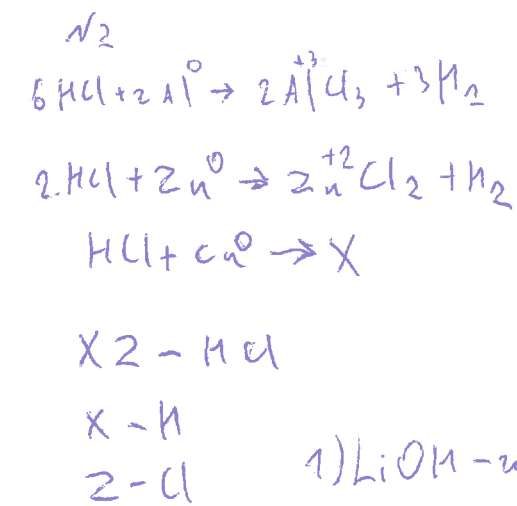 №2
6HCl+2Al⁰→2Al⁺³Cl₃+3H₂
2HCl+Zn⁰→Zn⁺²Cl₂+H₂
HCl+Cu⁰→X
XZ-HCl
X-H
Z-Cl
1)LiOH-